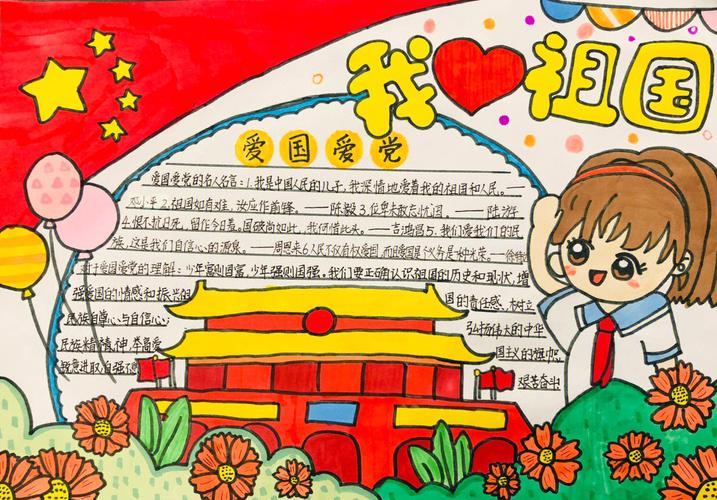 我 祖国
爱国爱党
爱国爱党的名人名言:1.我是中国人民的儿子,我深情地爱着我的祖国和人民。——
邓小平 2.祖国如有难,汝应作前锋。——陈毅 3.位卑未敢忘忧国。——陆游
4.恨不抗日死,留作今日羞。国破尚如此,我何惜此头。——吉鸿昌 5.我们爱我们的民
族,这是我们自信心的源泉。——周恩来 6.人民不仅有权爱国,而且爱国是个义务是一种光荣。——徐特立
对于爱国爱党的理解:少年富则国富,少年强则国强。我们要正确认识祖国的历史和现状,增
强爱国的情感和振兴祖国的责任感,树立
民族自尊心与自信心;弘扬伟大的中华
民族精神,高举爱国主义的旗帜,
锐意进取,自强不息 艰苦奋斗